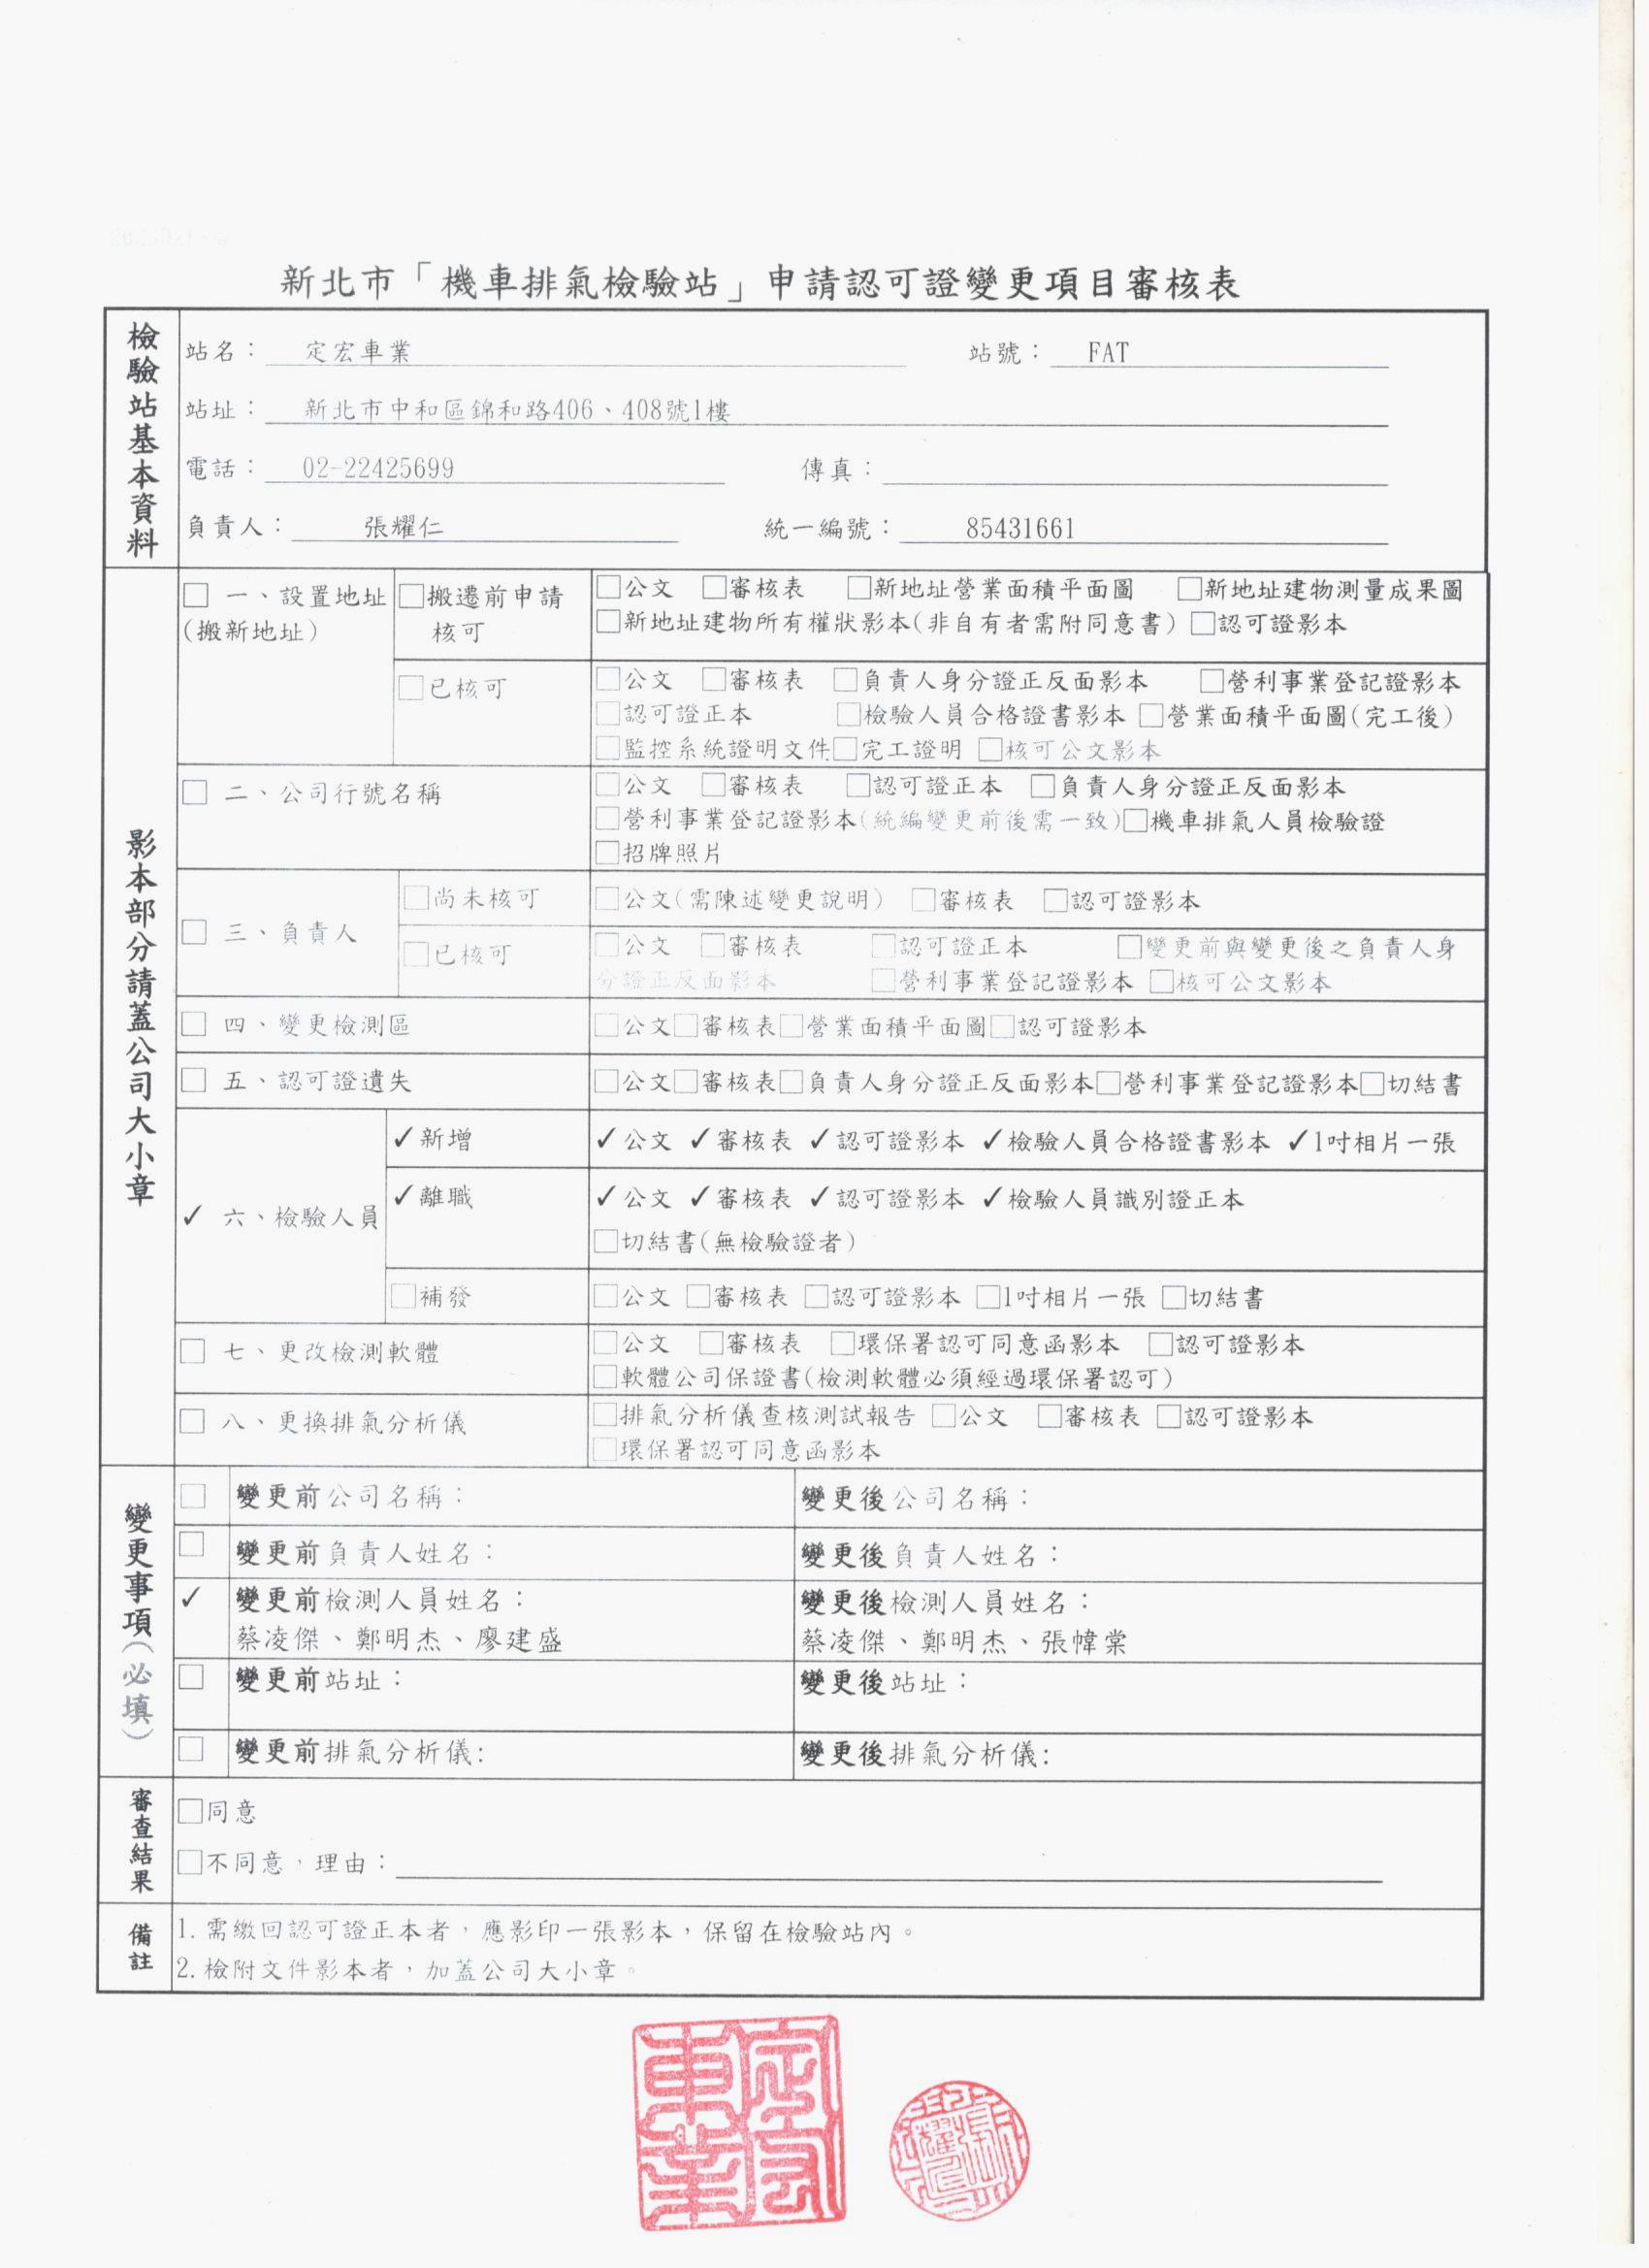 新北市「機車排氣檢驗站」申請認可證變更項目審核表
檢驗站基本資料
站名：　定宏車業　站號：　FAT
站址：　新北市中和區錦和路406、408號1樓
電話：　02-22425699　傳真：
負責人：　張耀仁　統一編號：　85431661
影本部分請蓋公司大小章
□ 一、設置地址
(搬新地址)
□搬遷前申請
核可
□公文　□審核表　□新地址營業面積平面圖　□新地址建物測量成果圖
□新地址建物所有權狀影本(非自有者需附同意書) □認可證影本
□已核可
□公文　□審核表　□負責人身分證正反面影本　□營利事業登記證影本
□認可證正本　□檢驗人員合格證書影本 □營業面積平面圖(完工後)
□監控系統證明文件□完工證明 □核可公文影本
□ 二、公司行號名稱
□公文　□審核表　□認可證正本　□負責人身分證正反面影本
□營利事業登記證影本(統編變更前後需一致)□機車排氣人員檢驗證
□招牌照片
□ 三、負責人
□尚未核可
□公文(需陳述變更說明)　□審核表　□認可證影本
□已核可
□公文　□審核表　□認可證正本　□變更前與變更後之負責人身
分證正反面影本　□營利事業登記證影本 □核可公文影本
□ 四、變更檢測區
□公文□審核表□營業面積平面圖□認可證影本
□ 五、認可證遺失
□公文□審核表□負責人身分證正反面影本□營利事業登記證影本□切結書
✓ 六、檢驗人員
✓新增
✓公文 ✓審核表 ✓認可證影本 ✓檢驗人員合格證書影本 ✓1吋相片一張
✓離職
✓公文 ✓審核表 ✓認可證影本 ✓檢驗人員識別證正本
□切結書(無檢驗證者)
□補發
□公文 □審核表 □認可證影本 □1吋相片一張 □切結書
□ 七、更改檢測軟體
□公文　□審核表　□環保署認可同意函影本　□認可證影本
□軟體公司保證書(檢測軟體必須經過環保署認可)
□ 八、更換排氣分析儀
□排氣分析儀查核測試報告 □公文　□審核表 □認可證影本
□環保署認可同意函影本
變更事項(必填)
□　變更前公司名稱：　變更後公司名稱：
□　變更前負責人姓名：　變更後負責人姓名：
✓　變更前檢測人員姓名：　變更後檢測人員姓名：
蔡凌傑、鄭明杰、廖建盛　蔡凌傑、鄭明杰、張幃棠
□　變更前站址：　變更後站址：
□　變更前排氣分析儀:　變更後排氣分析儀:
審查結果
□同意
□不同意，理由：
備註
1.需繳回認可證正本者，應影印一張影本，保留在檢驗站內。
2.檢附文件影本者，加蓋公司大小章。
定宏
車業